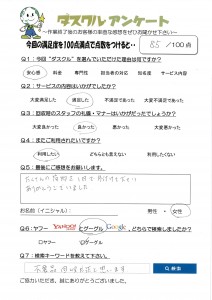 ダスクル アンケート
～作業終了後のお客様の率直な感想をぜひお聞かせ下さい～
今回の満足度を100点満点で点数をつけると・・ 85 / 100 点
Q1:今回『ダスクル』を選んでいただけた理由は何ですか？
安心感 料金 専門性 担当者の対応 知名度 サービス内容
Q2:サービスの内容はいかがでしたか？
大変満足した 満足した 不満足であった 大変不満足であった
Q3:回収時のスタッフの礼儀・マナーはいかがだったでしょうか？
大変良かった 良かった 悪かった 大変悪かった
Q4:またご利用されたいですか？
利用したい どちらとも言えない 利用したくない
Q5:最後にご感想をお願いします。
ありがとうございました
お名前(イニシャル) 男性・女性
Q6:ヤフー YAHOO! とグーグル Google、どちらで検索されましたか？
□ヤフー □グーグル
Q7:検索キーワードを教えて下さい。
不用品 回収 検索
ご協力いただき、誠にありがとうございました。